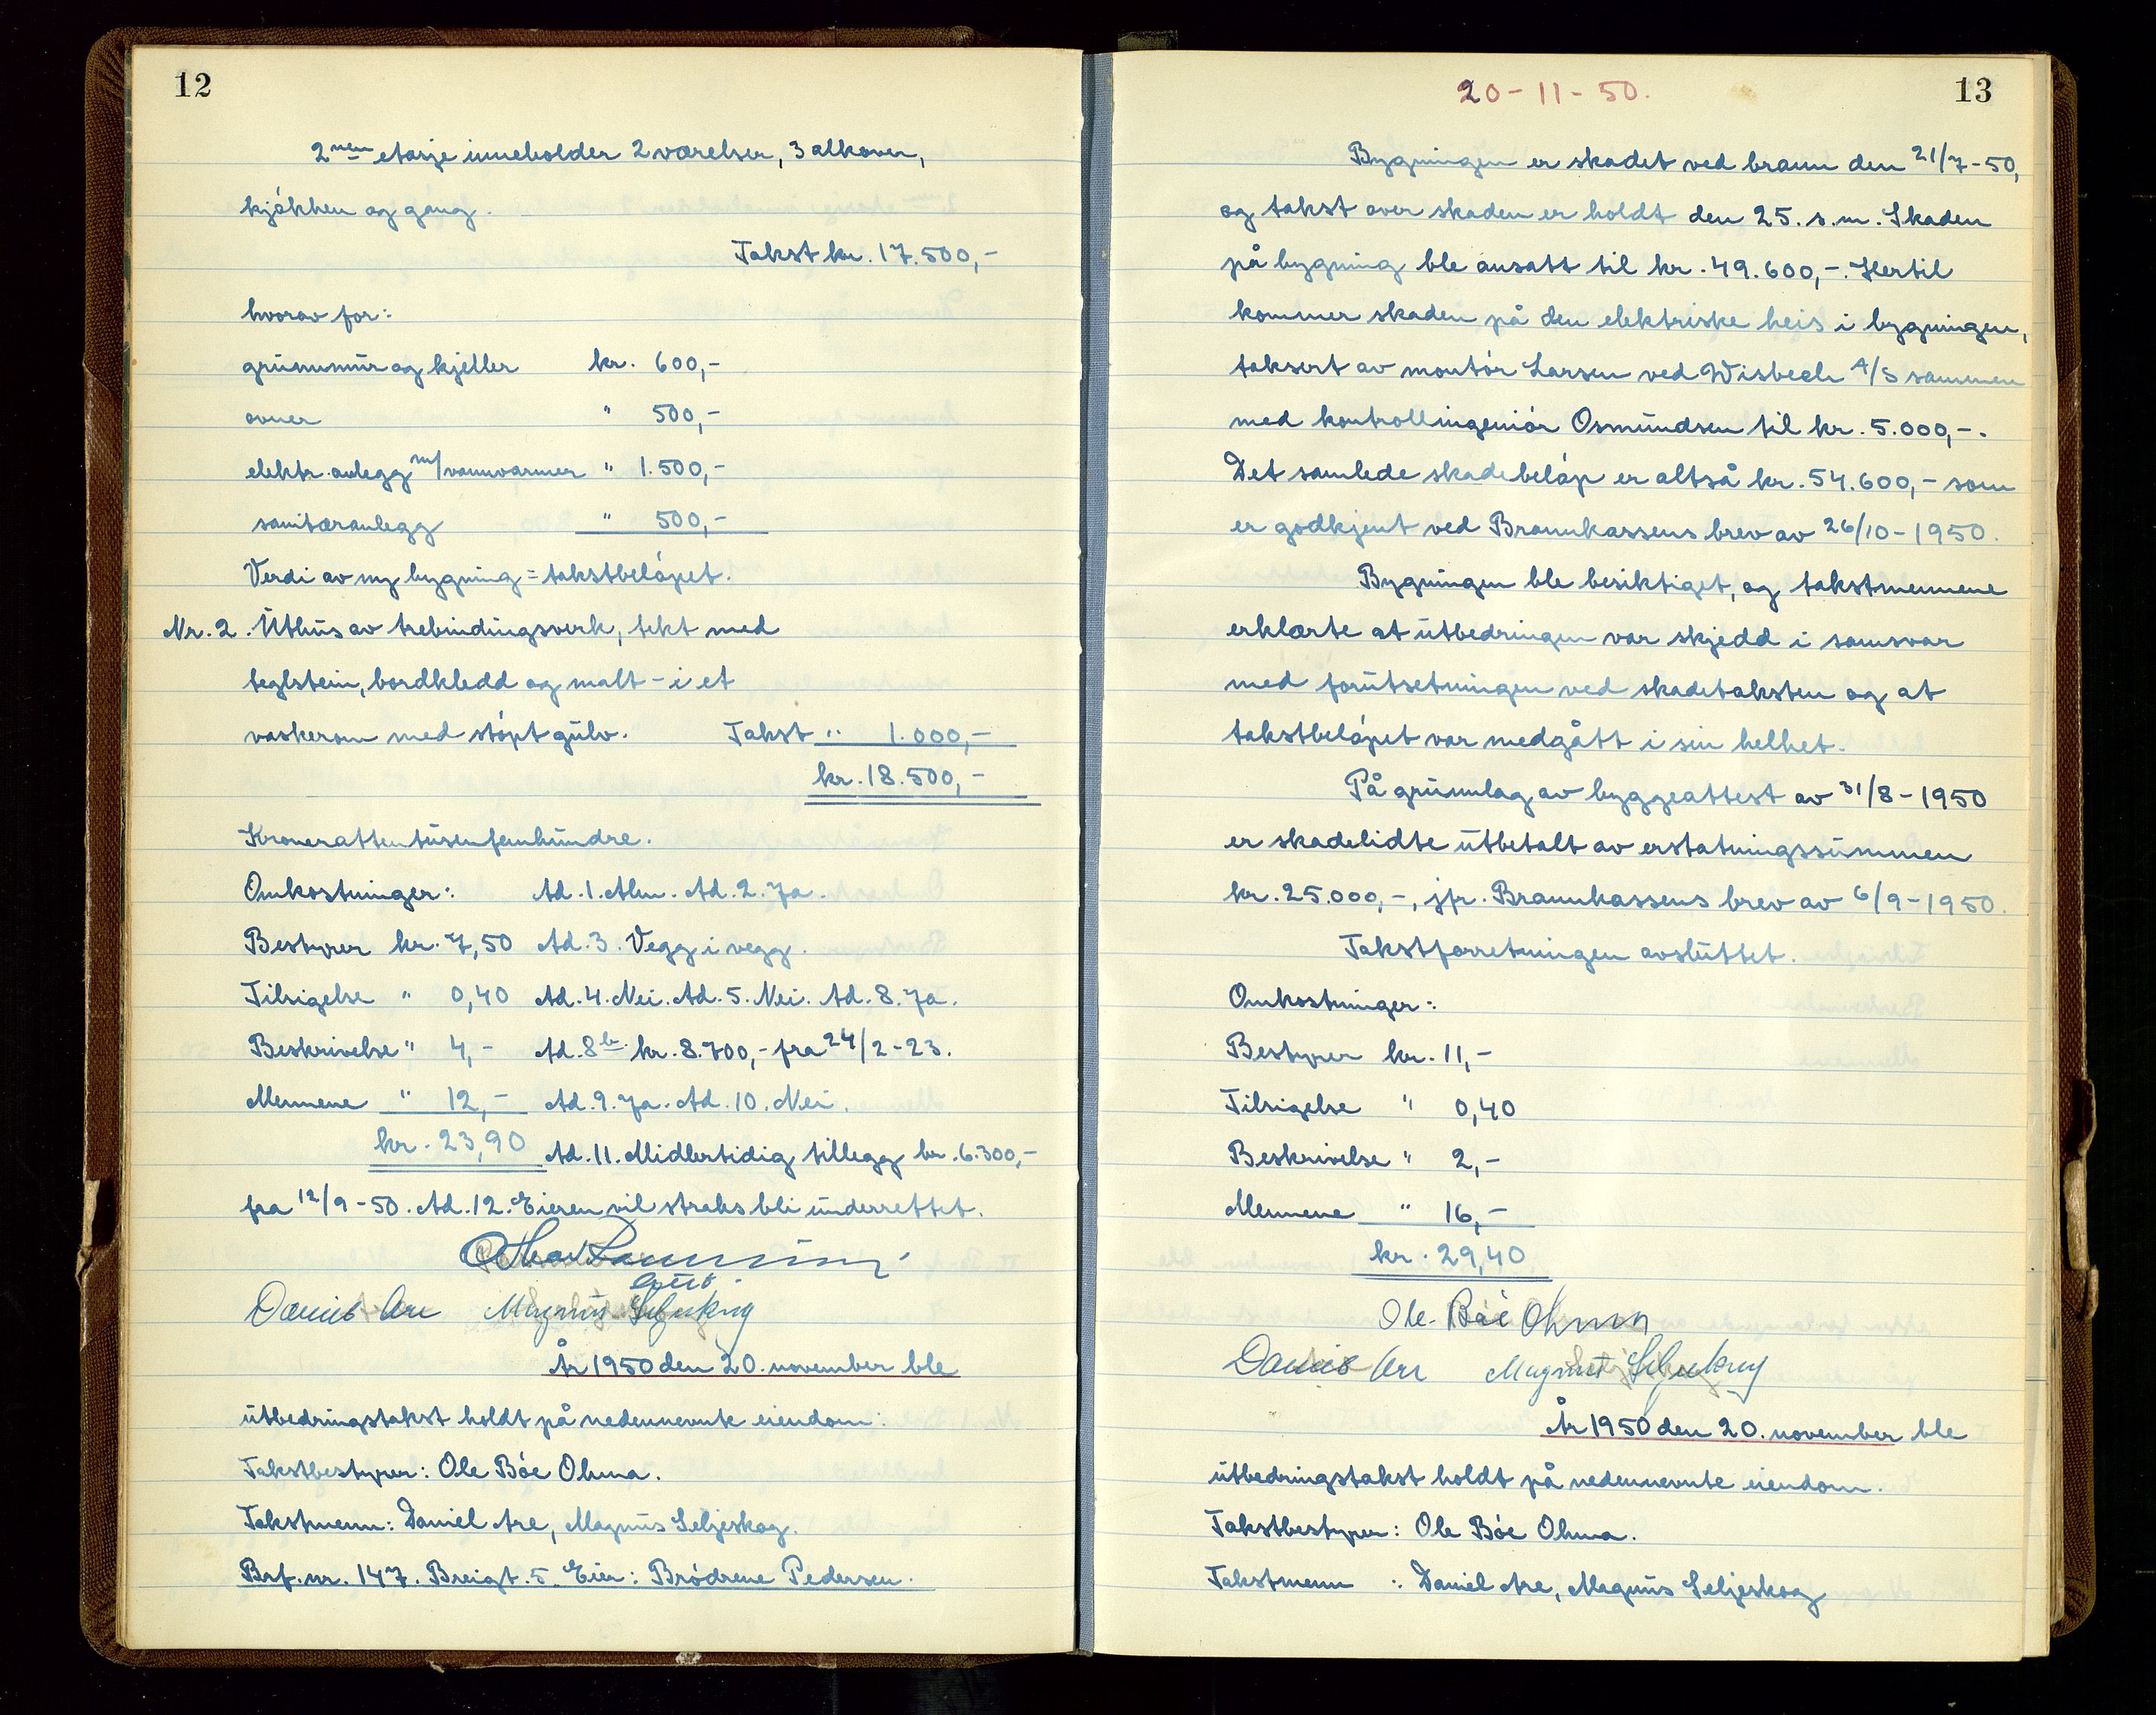 12
2nen etasje inneholder 2 værelser, 3 alkover,
kjøkken og gang.
Takst kr. 17.500,-
hvorav for:
grunnmur og kjeller kr. 600,-
ovner " 500,-
elektr. anlegg m/ vannvarmer " 1.500,-
sanitæranlegg " 500,-
Verdi av ny bygning = takstbeløpet.
Nr. 2. Uthus av trebindingsverk, tekt med
teglstein, bordkledd og malt - i et
vaskerom med støpt gulv. Takst " 1.000,-
kr. 18.500,-
Kroner attentusenfemhundre.
Omkostninger: Ad. 1. Alm. Ad. 2. Ja.
Bestyrer kr. 7,50 Ad. 3. Vegg i vegg.
Tilsigelse " 0,40 Ad. 4. Nei. Ad. 5. Nei. Ad. 8. Ja.
Beskrivelse " 4,- Ad. 8b. kr. 8.700,- fra 24/2-23.
Mennene " 12,- Ad. 9. Ja. Ad. 10. Nei.
kr. 23,90 Ad. 11. Midlertidig tillegg kr. 6.300,-
fra 12/9-50. Ad. 12. Eieren vil straks bli underrettet.
Daniel Are Magnus Seljeskog
År 1950 den 20. november ble
utbedringstakst holdt på nedennevnte eiendom:
Takstbestyrer: Ole Bøe Ohma.
Takstmenn: Daniel Are, Magnus Seljeskog.
Brf. nr. 147. Breigt. 5. Eier: Brødrene Pedersen.
20-11-50.
13
Bygningen er skadet ved brann den 21/7-50,
og takst over skaden er holdt den 25. s.m. Skaden
på bygning ble ansatt til kr. 49.600,-. Hertil
kommer skaden på den elektriske heis i bygningen,
taksert av montør Larsen ved Wisbech A/S sammen
med kontrollingeniør Osmundsen til kr. 5.000,-.
Det samlede skadebeløp er altså kr. 54.600,- som
er godkjent ved Brannkassens brev av 26/10-1950.
Bygningen ble besiktiget, og takstmennene
erklærte at utbedringen var skjedd i samsvar
med forutsetningen ved skadetaksten og at
takstbeløpet var medgått i sin helhet.
På grunnlag av byggeattest av 31/8-1950
er skadelidte utbetalt av erstatningssummen
kr. 25.000,-, jfr. Brannkassens brev av 6/9-1950.
Takstforretningen avsluttet.
Omkostninger:
Bestyrer kr. 11,-
Tilsigelse " 0,40
Beskrivelse " 2,-
Mennene " 16,-
kr. 29,40
Ole Bøe Ohma
Daniel Are Magnus Seljeskog
År 1950 den 20. november ble
utbedringstakst holdt på nedennevnte eiendom.
Takstbestyrer: Ole Bøe Ohma.
Takstmenn : Daniel Are, Magnus Seljeskog